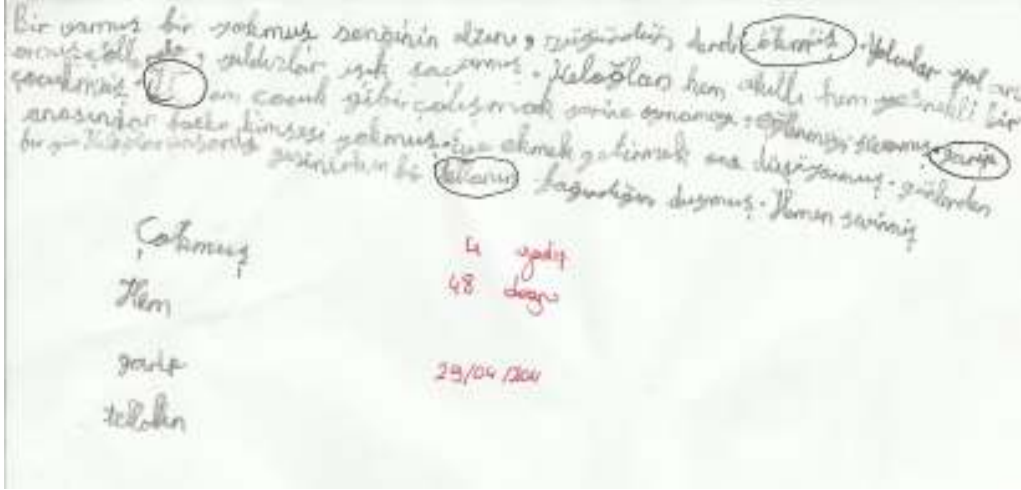 Bir varmış bir yokmuş zenginin altını, züğürdün derdi çokmuş. Yolcular yol
yıldızlar ışık saçarmış. Keloğlan hem akıllı hem yetenekli bir
çocukmuş. çocuk gibi çalışmak yerine oynamayı, eğlenmeyi severmiş. garip
anasından başka kimsesi yokmuş. eve ekmek getirmek ona düşüyormuş. günlerden
bir gün Keloğlan bir tellanın bağırdığın duymuş. Hemen sevinmiş
Çokmuş
Hem
garip
tellalın
4 yanlış
48 doğru
29/04/2011